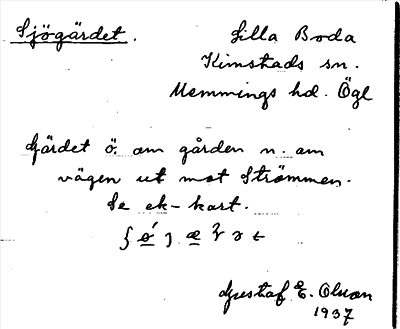 Sjögärdet.
Lilla Boda
Kimstads sn.
Memmings hd. Ögl
Gärdet ö. om gården n. om
vägen ut mot Strömmen.
Se ek-kart.
Gustaf E. Olson
1937